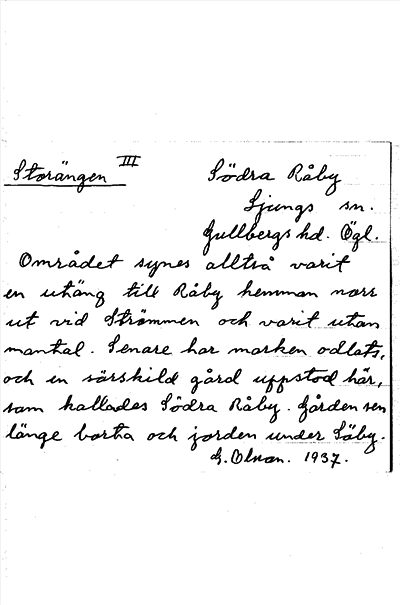 Storängen III
Södra Råby
Ljungs sn.
Gullbergs hd. Ögl.
Området synes alltså varit
en utäng till Råby hemman norr
ut vid Strömmen och varit utan
mantal. Senare har marken odlats,
och en särskild gård uppstod här,
som kallades Södra Råby. Gården sen
länge borta och jorden under Säby.
G. Olson. 1937.